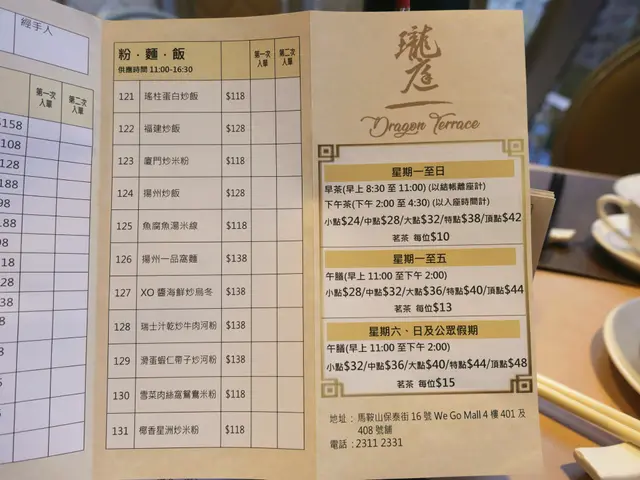 經手人
第一次
入單
第二次
入單
158
108
128
188
98
88
128
138
38
粉．麵．飯
供應時間 11:00-16:30
第一次
入單
第二次
入單
121 瑤柱蛋白炒飯 $118
122 福建炒飯 $128
123 廈門炒米粉 $118
124 揚州炒飯 $128
125 魚腐魚湯米線 $118
126 揚州一品窩麵 $138
127 XO 醬海鮮炒烏冬 $138
128 瑞士汁乾炒牛肉河粉 $138
129 滑蛋蝦仁帶子炒河粉 $138
130 雪菜肉絲窩鴛鴦米粉 $118
131 椰香星洲炒米粉 $118
瓏庭
Dragon Terrace
星期一至日
早茶(早上 8:30 至 11:00) (以結帳離座計)
下午茶(下午 2:00 至 4:30) (以入座時間計)
小點$24/中點$28/大點$32/特點$38/頂點$42
茗茶 每位$10
星期一至五
午膳(早上 11:00 至下午 2:00)
小點$28/中點$32/大點$36/特點$40/頂點$44
茗茶 每位$13
星期六、日及公眾假期
午膳(早上 11:00 至下午 2:00)
小點$32/中點$36/大點$40/特點$44/頂點$48
茗茶 每位$15
地址：馬鞍山保泰街 16 號 We Go Mall 4 樓 401 及
408 號舖
電話：2311 2331